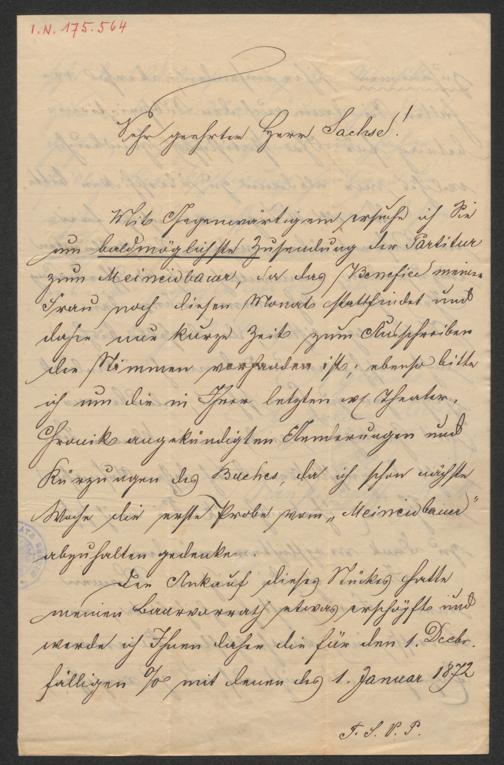 I.N. 175.564
Sehr geehrter Herr Sachse!
Mit Gegenwärtigem ersuche ich Sie
um baldmöglichste Zusendung der Partitur
zum Meineidbauer, da das Benefice meiner
Frau noch diesen Monat stattfindet und
daher nur kurze Zeit zum Ausschreiben
der Stimmen vorhanden ist; ebenso bitte
ich um die in Ihrer letzten Theater-
Chronik angekündigten Aenderungen und
Kürzungen des Buches, da ich schon nächste
Woche die erste Probe vom „Meineidbauer"
abzuhalten gedenke.
Der Ankauf dieses Stückes hatte
meinen Baarvorrath etwas erschöpft und
werde ich Ihnen daher die für den 1. Decbr.
fälligen % mit denen des 1. Januar 1872
T. S. V. P.